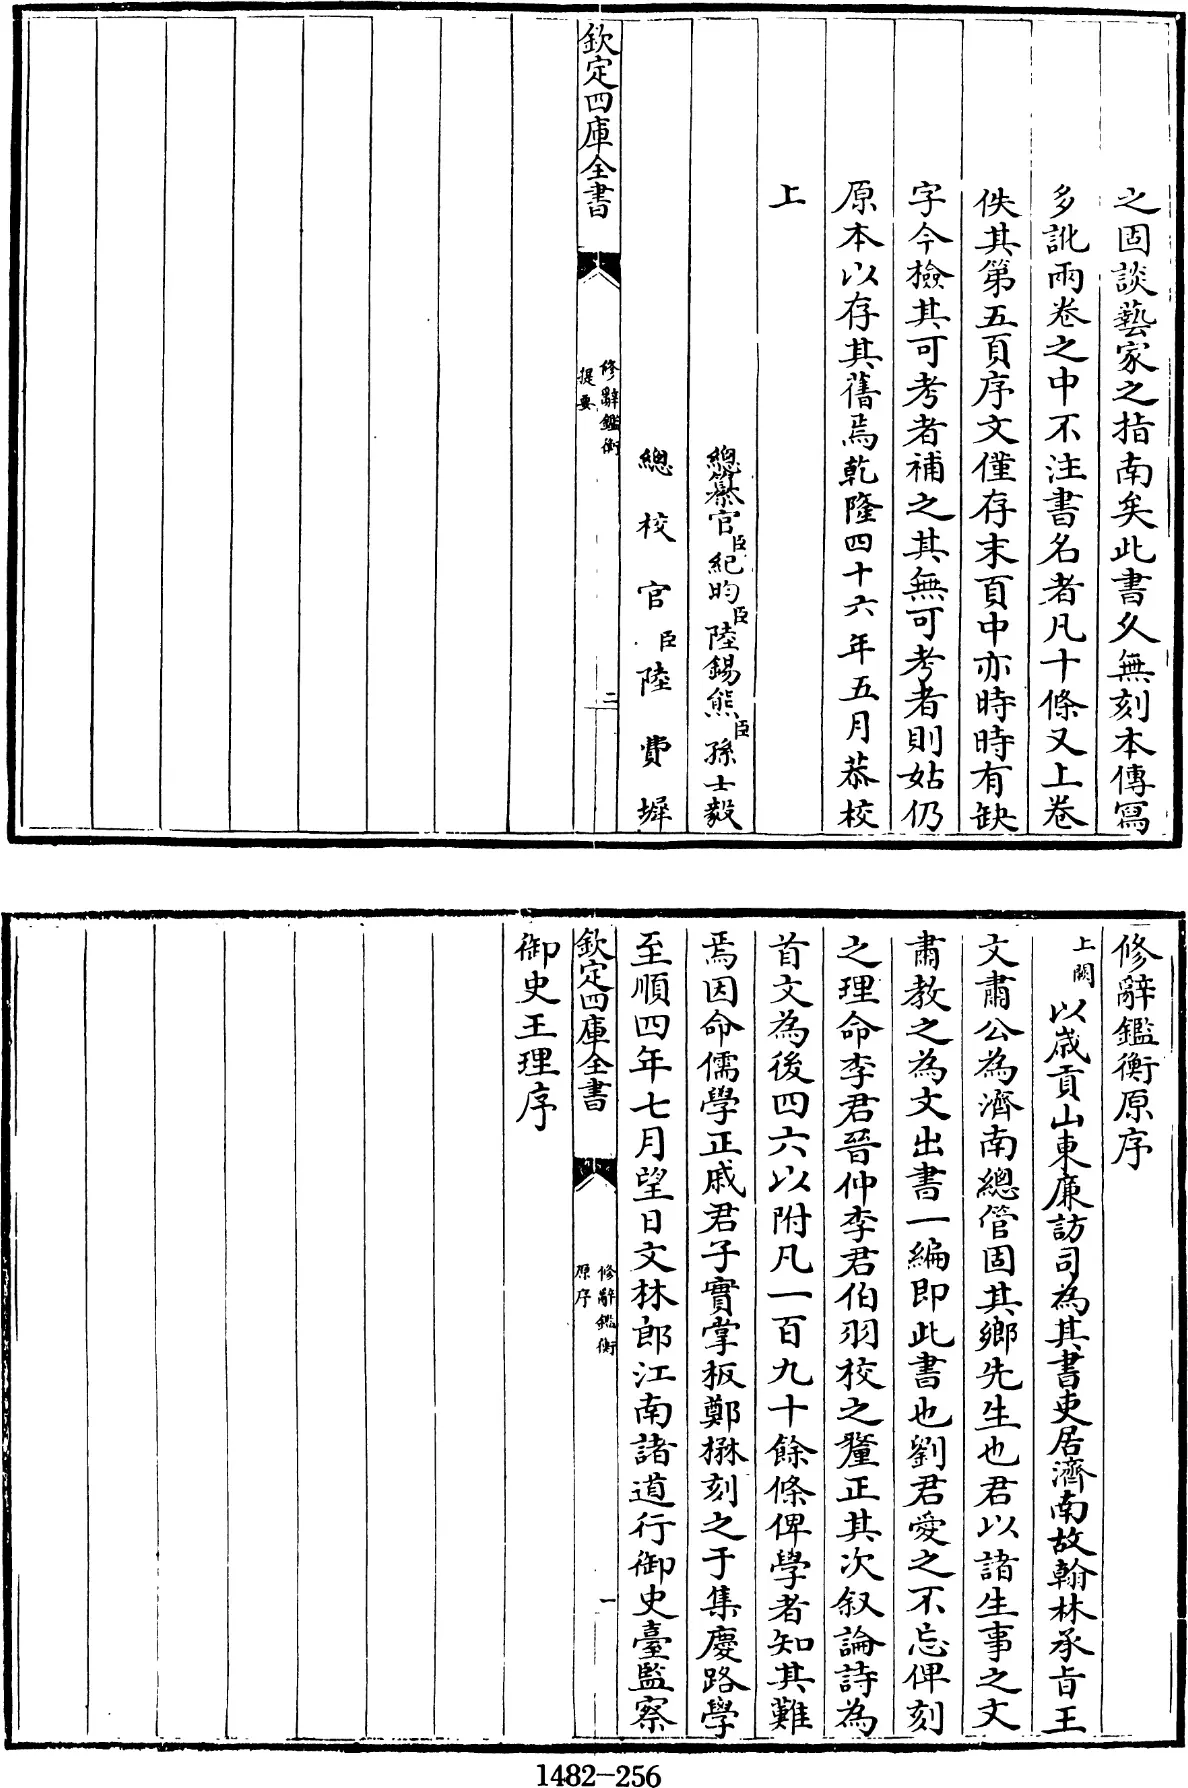 之固談藝家之指南矣此書久無刻本傳寫
多訛兩卷之中不注書名者凡十條又上卷
佚其第五頁序文僅存末頁中亦時時有缺
字今檢其可考者補之其無可考者則姑仍
原本以存其舊焉乾隆四十六年五月恭校
上
總纂官臣紀昀臣陸錫熊臣孫士毅
總校官臣陸費墀
欽定四庫全書
修辭鑑衡
提要
二
修辭鑑衡原序
上闕以歳貢山東廉訪司為其書吏居濟南故翰林承旨王
文肅公為濟南總管固其鄉先生也君以諸生事之文
肅教之為文出書一編即此書也劉君愛之不忘俾刻
之理命李君晉仲李君伯羽校之釐正其次叙論詩為
首文為後四六以附凡一百九十餘條俾學者知其難
焉因命儒學正戚君子實掌板鄭楙刻之于集慶路學
至順四年七月望日文林郎江南諸道行御史臺監察
欽定四庫全書
修辭鑑衡
原序
一
御史王理序
1482-256